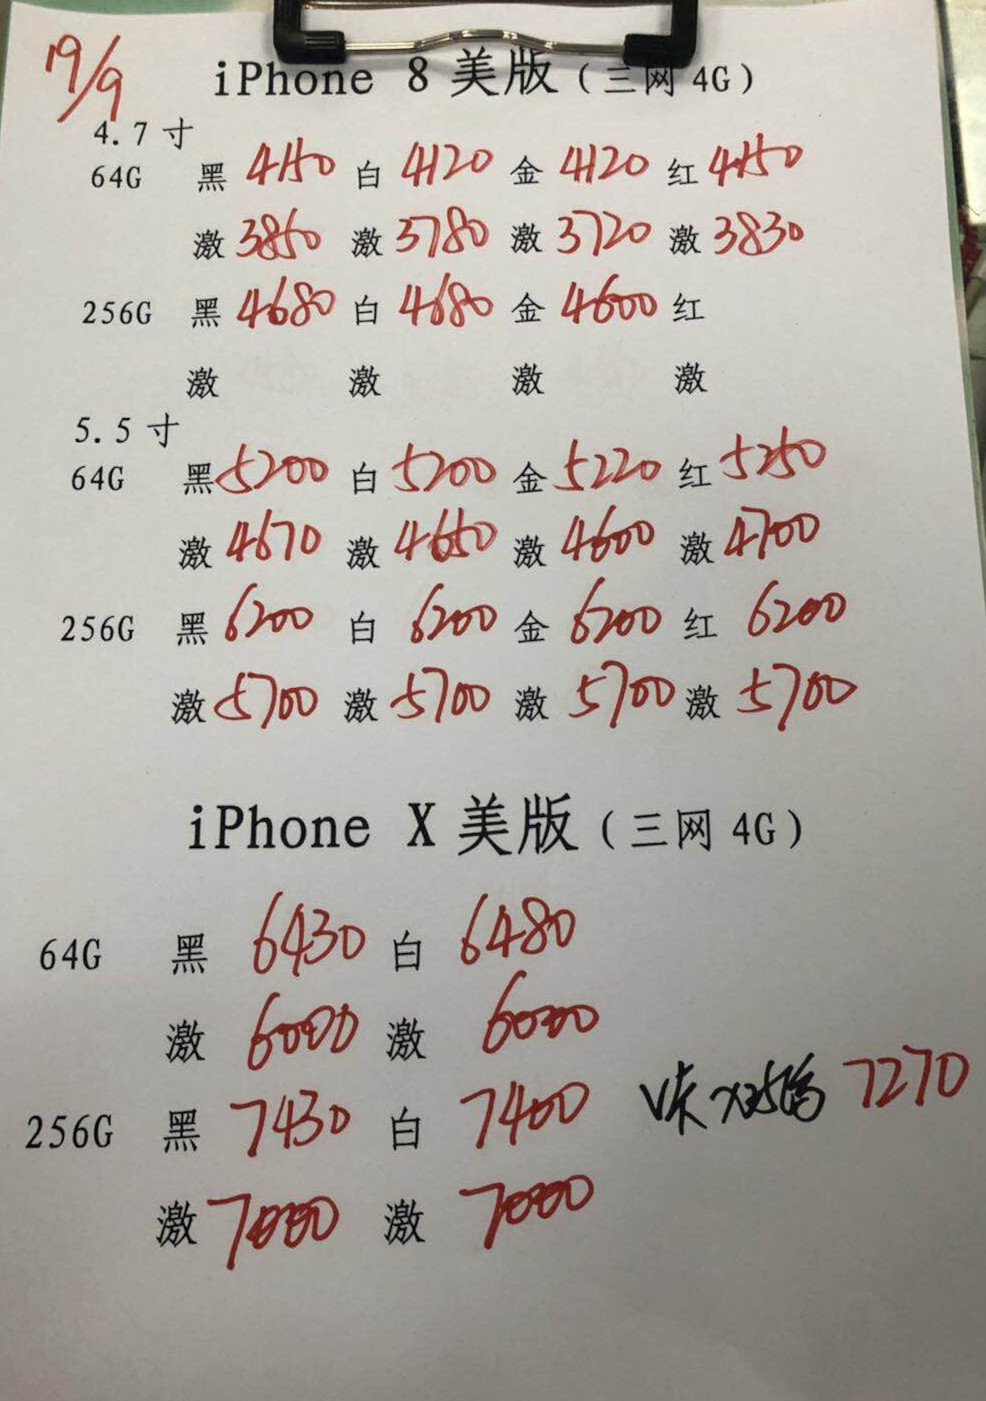 19/9
iPhone 8 美版（三网 4G）
4.7 寸
64G 黑 4150 白 4120 金 4120 红 4150
激 3850 激 3780 激 3720 激 3830
256G 黑 4680 白 4680 金 4600 红
激 激 激 激
5.5 寸
64G 黑 5200 白 5200 金 5220 红 5250
激 4670 激 4650 激 4600 激 4700
256G 黑 6200 白 6200 金 6200 红 6200
激 5700 激 5700 激 5700 激 5700
iPhone X 美版（三网 4G）
64G 黑 6430 白 6480
激 6000 激 6000
256G 黑 7430 白 7400 7270
激 7000 激 7000